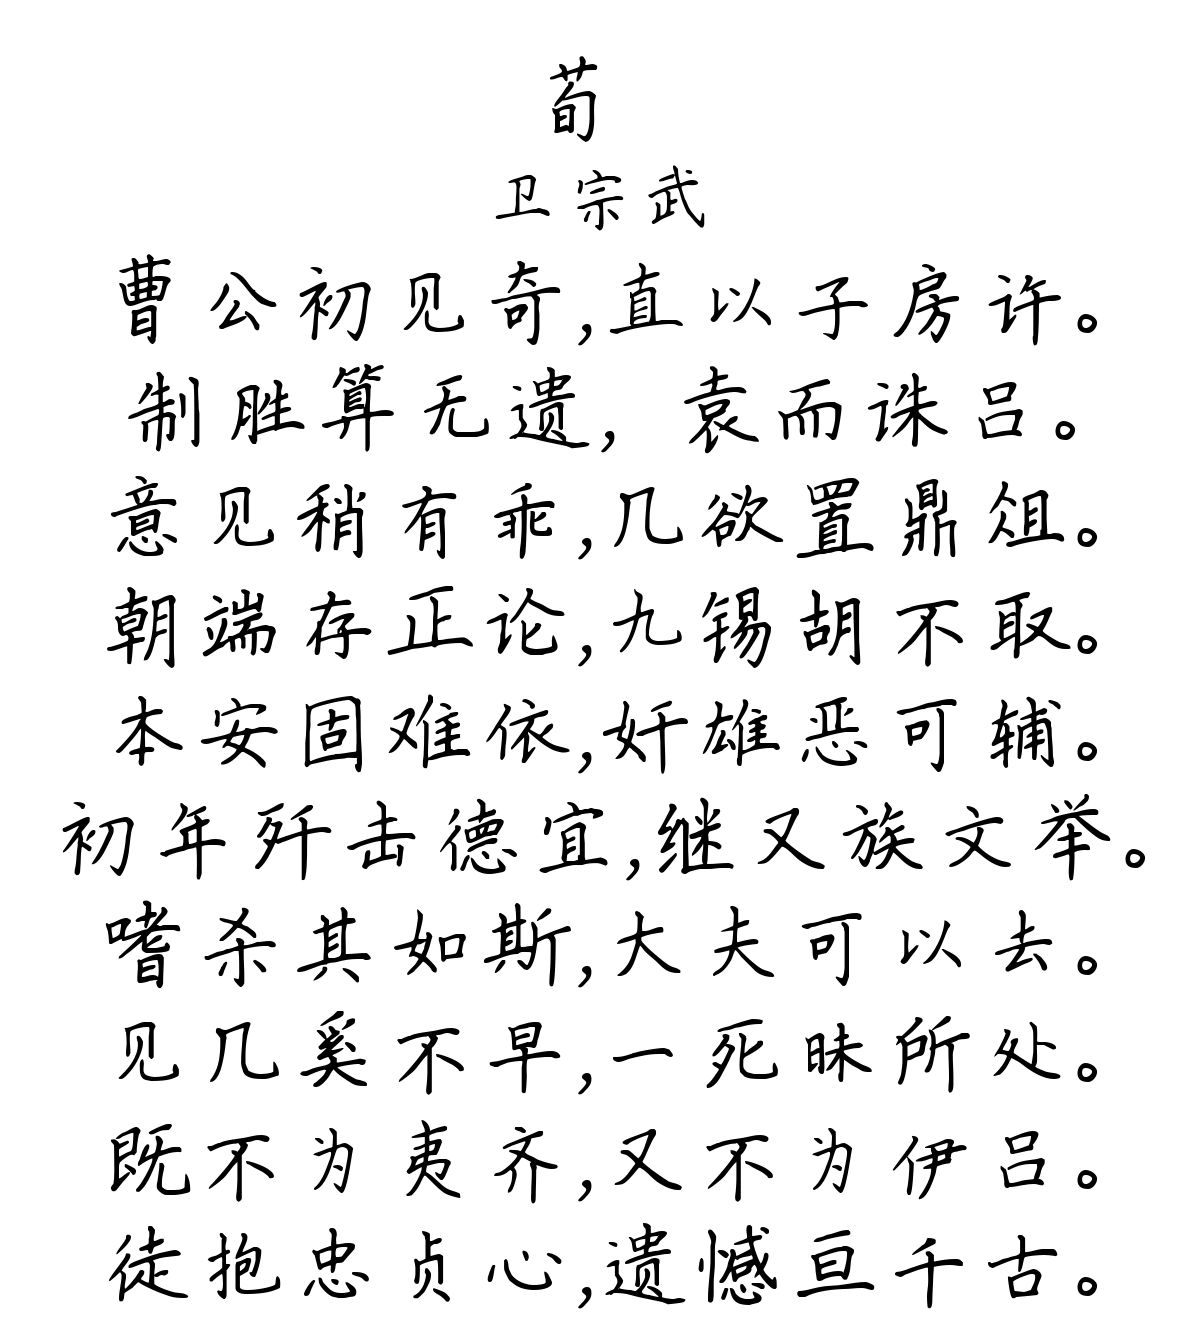 荀
卫宗武
曹公初见奇,直以子房许。
制胜算无遗,袁而诛吕。
意见稍有乖,几欲置鼎俎。
朝端存正论,九锡胡不取。
本安固难依,奸雄恶可辅。
初年歼击德宜,继又族文举。
嗜杀其如斯,大夫可以去。
见几奚不早,一死昧所处。
既不为夷齐,又不为伊吕。
徒抱忠贞心,遗憾亘千古。